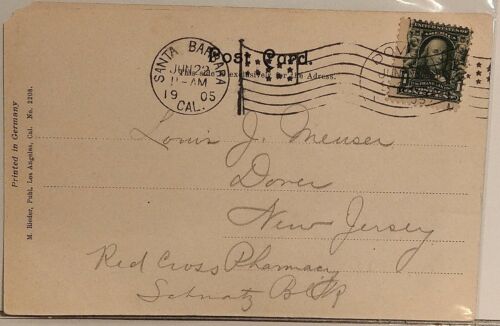 Post Card.
This side is exclusively for the Adress.
SANTA BARBARA
JUN 22
11-AM
1905
CAL.
DOVER
JUN
UNITED STATES
Louis J. Meuser
Dover
New Jersey
Red Cross Pharmacy
Schwatz
Printed in Germany
M. Rieder, Publ., Los Angeles, Cal. No. 2208.